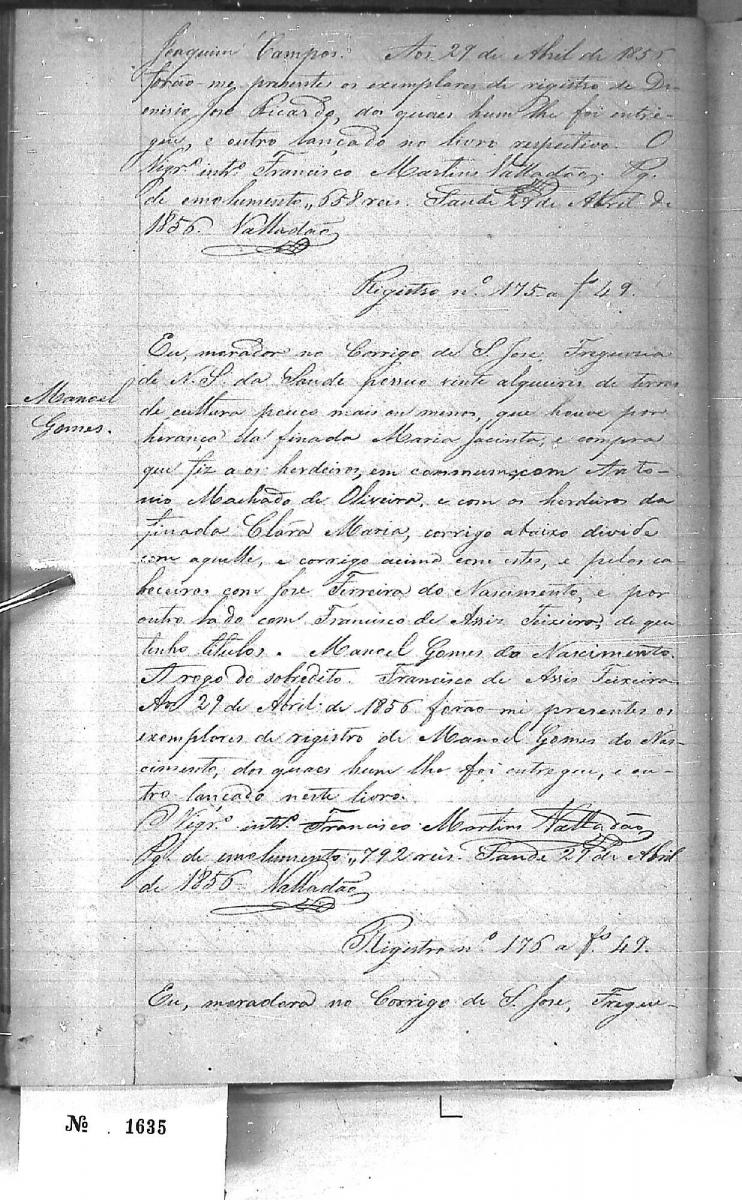 Joaquim Campos. Aos 29 de Abril de 1856
forão-me presentes os exemplares de registro de Di-
onisio José Ricardo, dos quaes hum lhe foi entre-
gue, e outro lançado no livro respectivo. O
Vigr.º intr.º Francisco Martins Valladão. Pg.
de emolumento „ 658 reis. Saude 29 de Abril de
1856. Valladão
Registro n.º 175 a f.º 49.
Manoel
Gomes.
Eu, morador no Corrigo de S. Jose, Freguesia
de N. S. da Saude possuo vinte alqueires de terras
de cultura pouco mais ou menos, que houve por
herança da finada Maria Jacinta, e compra
que fiz a os herdeiros, em commum com Anto-
nio Machado de Oliveira, e com os herdeiros da
finada Clara Maria, corrigo abaixo divide
com aquelle, e corrigo acima com estes, e pelos ca-
beceiros com Jose Ferreira do Nascimento, e por
outro lado com Francisco de Assiz Teixeira, de que
tenho titulos. Manoel Gomes do Nascimento.
A rogo do sobredito. Francisco de Assis Teixeira
Aos 29 de Abril de 1856 forão-me presentes os
exemplares de registro de Manoel Gomes do Nas-
cimento, dos quaes hum lhe foi entregue, e ou-
tro lançado neste livro.
O Vigr.º intr.º Francisco Martins Valladão
Pg. de emolumento „ 792 reis. Saude 29 de Abril
de 1856. Valladão
Registro n.º 176 a f.º 49.
Eu, moradora no Corrigo de S. Jose, Fregue-
Nº 1635